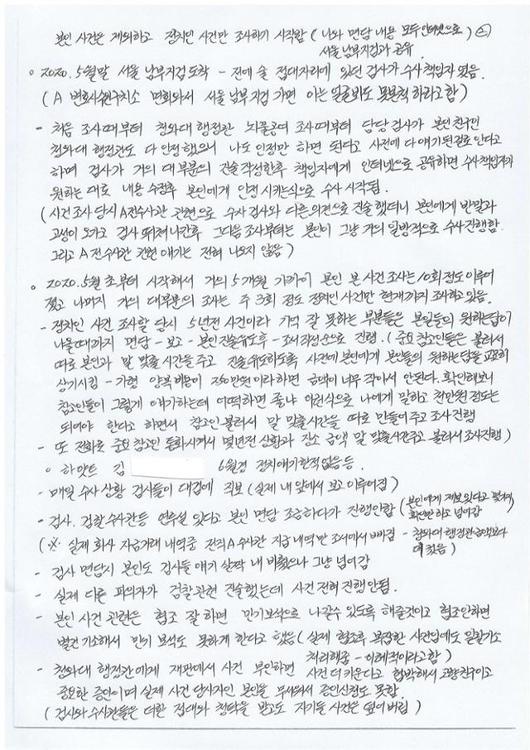 본인 사건은 제외하고 정치인 사건만 조사하기 시작함 (나와 면담 내용 모두 인터넷으로)
서울 남부지검과 공유
o 2020. 5월말 서울 남부지검 도착 - 전에 술 접대자리에 있던 검사가 수사 책임자 였음.
(A 변호사 구치소 면회와서 서울 남부지검 가면 아는 얼굴봐도 못본척 하라고함)
- 처음 조사 때부터 청와대 행정관 뇌물공여 조사때부터 담당 검사가 본인 친구인
청와대 행정관도 다 인정했으니 나도 인정만 하면 된다고 사건에 다 얘기된걸로 안다고
하며 검사가 거의 대부분의 진술 작성한후 책임자에게 인터넷으로 공유하면 수사 책임자가
원하는 대로 내용 수정후 본인에게 인정시키는식으로 수사 시작됨.
(사건조사 당시 A전수사관 관련으로 수사 검사와 다른의견으로 진술 했더니 본인에게 반말과
고성이 오가고 검사 뛰쳐나간후 그다음 조사부터는 본인이 그냥 거의 일방적으로 수사 진행함.
그리고 A 전수사관 관련 얘기는 전혀 나오지 않음)
o 2020. 5월 초부터 시작해서 거의 5개월 가까이 본인 본 사건조사는 10회 정도 이루어
졌고 나머지 거의 대부분의 조사는 주 3회 정도 정치인 사건만 현재까지 조사하고 있음.
- 정치인 사건 조사할 당시 5년전 사건이라 기억 잘 못하는 부분들은 본인들의 원하는 답이
나올때까지 면담 - 보고 - 본인진술유도후 - 조서작성 순으로 진행. (중요 참고인들은 불러서
따로 본인과 말 맞출 시간을 주고 진술유도하도록 사전에 본인에게 본인들의 원하는답을 교묘히
상기시킴 - 가령 양복 비용이 250만원 이라하면 금액이 너무 작아서 안된다. 확인해보니
참고인들이 그렇게 얘기하는데 어떡하면 좋냐 이런식으로 나에게 말하고 천만원 정도는
되어야 한다고 하면서 참고인 불러서 말 맞출시간을 따로 만들어주고 조사 진행
- 또 전화로 중요 참고인 통화시켜서 몇년전 상황과 장소 금액 말 맞출시간주고 불러서 조사진행)
o 하얏트 김 6월경 정치얘기한적 없음 등.
- 매일 수사 상황 검사들이 대검에 직보 (실제 내 앞에서 보고 이루어짐)
- 검사. 검찰 수사관등 연루설 있다고 본인 면담 조금하다가 진행안함
(※ 실제 회사 자금거래 내역중 전직 A수사관 지급 내역만 조서에서 빠짐
- 검사 면담시 본인도 검사들 얘기 살짝 내 비췄으나 그냥 넘어감
- 실제 다른 피의자가 검찰관련 진술했는데 사건 전혀 진행 안됨.
- 본인 사건 관련은 협조 잘 하면 만기보석으로 나갈수 있도록 해줄것이고 협조 안하면
별건 기소해서 만기 보석도 못하게 한다고 했음 (실제 협조후 복잡한 사건임에도 일괄기소
처리해줌 - 이례적이라고 함)
- 청와대 행정관에게 재판에서 사건 부인하면 사건 더 키운다고 협박해서 고향친구이고
중요한 증인이며 실제 사건 당사자인 본인을 무서워서 증인신청도 못함.
(검사와 수사관들은 더한 접대와 청탁을 받고도 자기들 사건은 덮어버림)